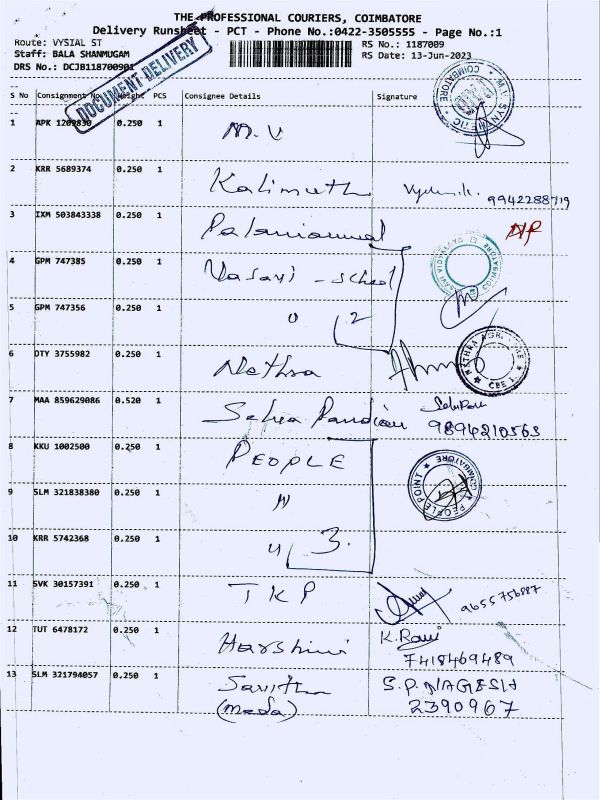 THE PROFESSIONAL COURIERS, COIMBATORE
Delivery Runsheet - PCT - Phone No.:0422-3505555 - Page No.:1
Route: VYSIAL ST RS No.: 1187009
Staff: BALA SHANMUGAM RS Date: 13-Jun-2023
DRS No.: DCJB118700901
DOCUMENT DELIVERY
S No Consignment No. Weight PCS Consignee Details Signature
1 APK 1209830 0.250 1 M.V
2 KRR 5689374 0.250 1 Kalimuthu 9942288719
3 IXM 503843338 0.250 1 Palaniammal
4 GPM 747385 0.250 1 Vasavi - school
5 GPM 747356 0.250 1 " 2
6 DTY 3755982 0.250 1 Nethra
7 MAA 859629086 0.520 1 Selva Pandian 9894210563
8 KKU 1002500 0.250 1 PEOPLE
PEOPLE POINT COIMBATORE
9 SLM 321838380 0.250 1 "
10 KRR 5742368 0.250 1 " 3.
11 SVK 30157391 0.250 1 TKP 9655756887
12 TUT 6478172 0.250 1 Harshini K. Ravi
7418469489
13 SLM 321794057 0.250 1 Savitha S.P. NAGESH
(meda) 2390967